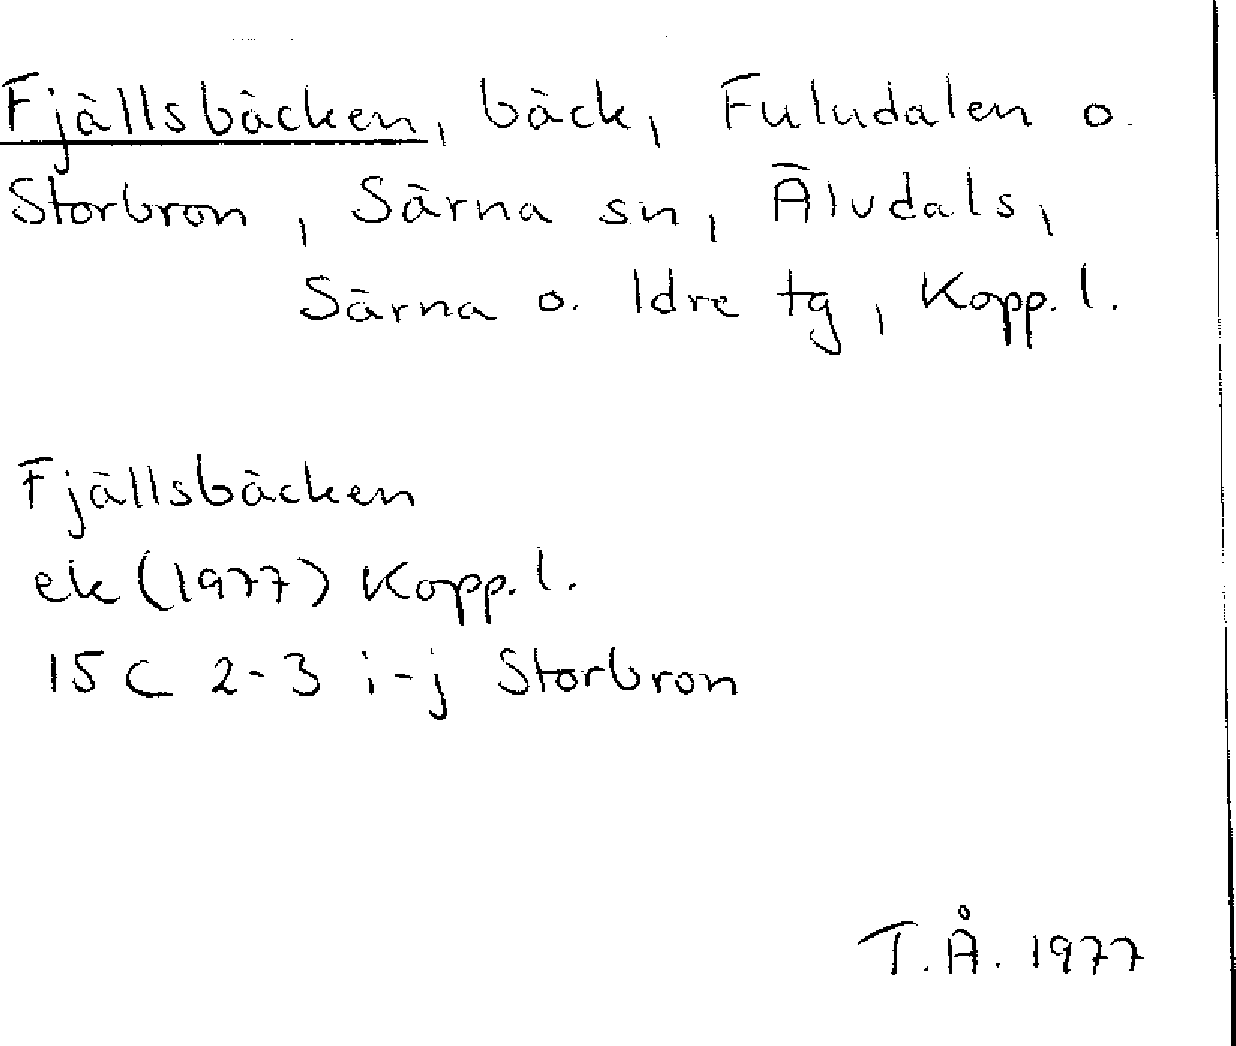 Fjällsbäcken, bäck, Fuludalen o.
Storbron, Särna sn, Älvdals,
Särna o. Idre tg, Kopp. l.
Fjällsbäcken
ek (1977) Kopp. l.
15 C 2-3 i-j Storbron
T.Å. 1977